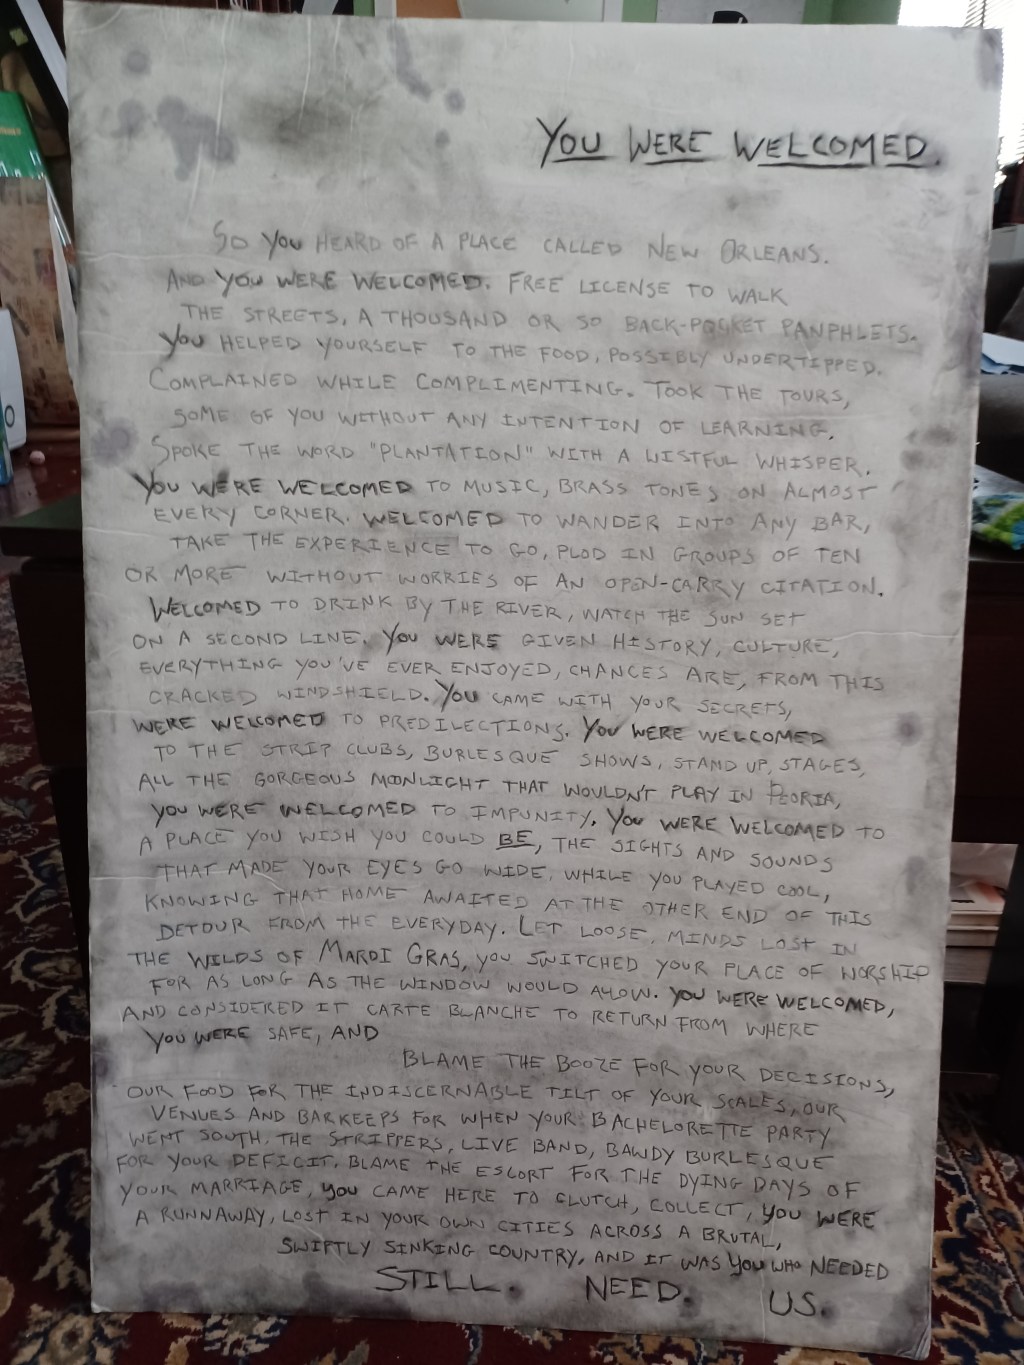 YOU WERE WELCOMED.
SO YOU HEARD OF A PLACE CALLED NEW ORLEANS.
AND YOU WERE WELCOMED. FREE LICENSE TO WALK
THE STREETS, A THOUSAND OR SO BACK-POCKET PANPHLETS.
YOU HELPED YOURSELF TO THE FOOD, POSSIBLY UNDERTIPPED.
COMPLAINED WHILE COMPLIMENTING. TOOK THE TOURS,
SOME OF YOU WITHOUT ANY INTENTION OF LEARNING.
SPOKE THE WORD "PLANTATION" WITH A WISTFUL WHISPER.
YOU WERE WELCOMED TO MUSIC, BRASS TONES ON ALMOST
EVERY CORNER. WELCOMED TO WANDER INTO ANY BAR,
TAKE THE EXPERIENCE TO GO, PLOD IN GROUPS OF TEN
OR MORE WITHOUT WORRIES OF AN OPEN-CARRY CITATION.
WELCOMED TO DRINK BY THE RIVER, WATCH THE SUN SET
ON A SECOND LINE. YOU WERE GIVEN HISTORY, CULTURE,
EVERYTHING YOU'VE EVER ENJOYED, CHANCES ARE, FROM THIS
CRACKED WINDSHIELD. YOU CAME WITH YOUR SECRETS,
WERE WELCOMED TO PREDILECTIONS. YOU WERE WELCOMED
TO THE STRIP CLUBS, BURLESQUE SHOWS, STAND UP, STAGES,
ALL THE GORGEOUS MOONLIGHT THAT WOULDN'T PLAY IN PEORIA,
YOU WERE WELCOMED TO IMPUNITY. YOU WERE WELCOMED TO
A PLACE YOU WISH YOU COULD BE, THE SIGHTS AND SOUNDS
THAT MADE YOUR EYES GO WIDE, WHILE YOU PLAYED COOL,
KNOWING THAT HOME AWAITED AT THE OTHER END OF THIS
DETOUR FROM THE EVERYDAY. LET LOOSE, MINDS LOST IN
THE WILDS OF MARDI GRAS, YOU SWITCHED YOUR PLACE OF WORSHIP
FOR AS LONG AS THE WINDOW WOULD ALLOW. YOU WERE WELCOMED,
AND CONSIDERED IT CARTE BLANCHE TO RETURN FROM WHERE
YOU WERE SAFE, AND
BLAME THE BOOZE FOR YOUR DECISIONS,
OUR FOOD FOR THE INDISCERNABLE TILT OF YOUR SCALES, OUR
VENUES AND BARKEEPS FOR WHEN YOUR BACHELORETTE PARTY
WENT SOUTH, THE STRIPPERS, LIVE BAND, BAWDY BURLESQUE
FOR YOUR DEFICIT. BLAME THE ESCORT FOR THE DYING DAYS OF
YOUR MARRIAGE, YOU CAME HERE TO CLUTCH, COLLECT, YOU WERE
A RUNNAWAY, LOST IN YOUR OWN CITIES ACROSS A BRUTAL,
SWIFTLY SINKING COUNTRY, AND IT WAS YOU WHO NEEDED
STILL. NEED. US.